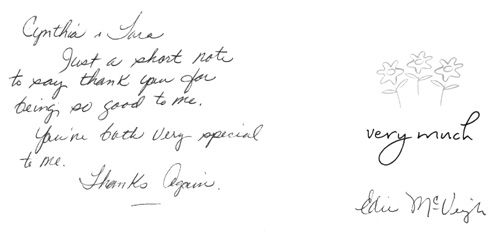 Cynthia & Tara
Just a short note
to say thank you for
being so good to me.
You're both very special
to me.
Thanks Again.
very much
Edie McVeigh